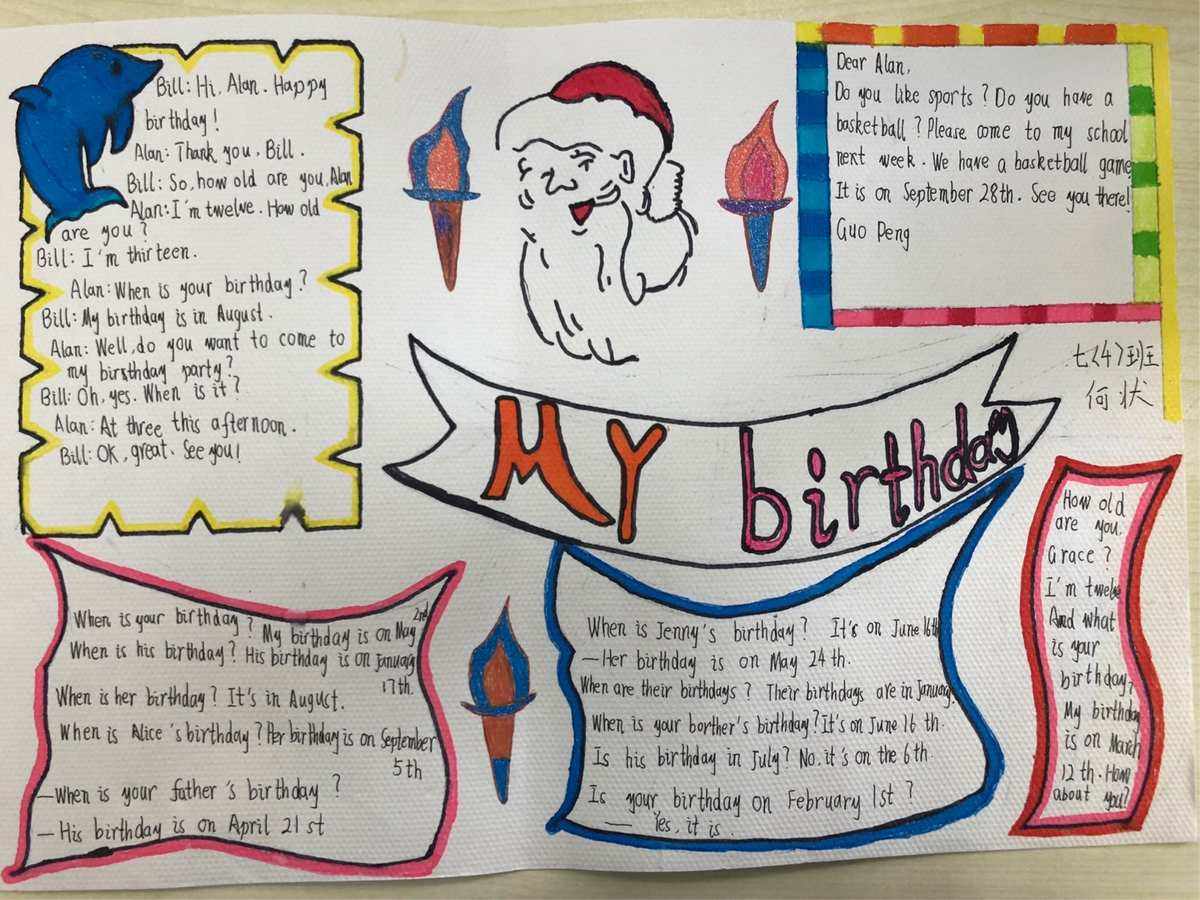 Bill: Hi, Alan. Happy
birthday!
Alan: Thank you, Bill.
Bill: So, how old are you, Alan
Alan: I'm twelve. How old
are you?
Bill: I'm thirteen.
Alan: When is your birthday?
Bill: My birthday is in August.
Alan: Well, do you want to come to
my birsthday party?
Bill: Oh, yes. When is it?
Alan: At three this afternoon.
Bill: OK, great. See you!
Dear Alan,
Do you like sports? Do you have a
basketball? Please come to my school
next week. We have a basketball game
It is on September 28th. See you there!
Guo Peng
七(4)班
何状
My birthday
When is your birthday? My birthday is on May 2nd
When is his birthday? His birthday is on January
17th.
When is her birthday? It's in August.
When is Alice's birthday? Her birthday is on September
5th
—When is your father's birthday?
—His birthday is on April 21st
When is Jenny's birthday? It's on June 16th
—Her birthday is on May 24th.
When are their birthdays? Their birthdays are in January.
When is your borther's birthday? It's on June 16 th.
Is his birthday in July? No, it's on the 6th.
Is your birthday on February 1st?
— Yes, it is.
How old
are you,
Grace?
I'm twelve
And what
is your
birthday?
My birthday
is on March
12th. How
about you?